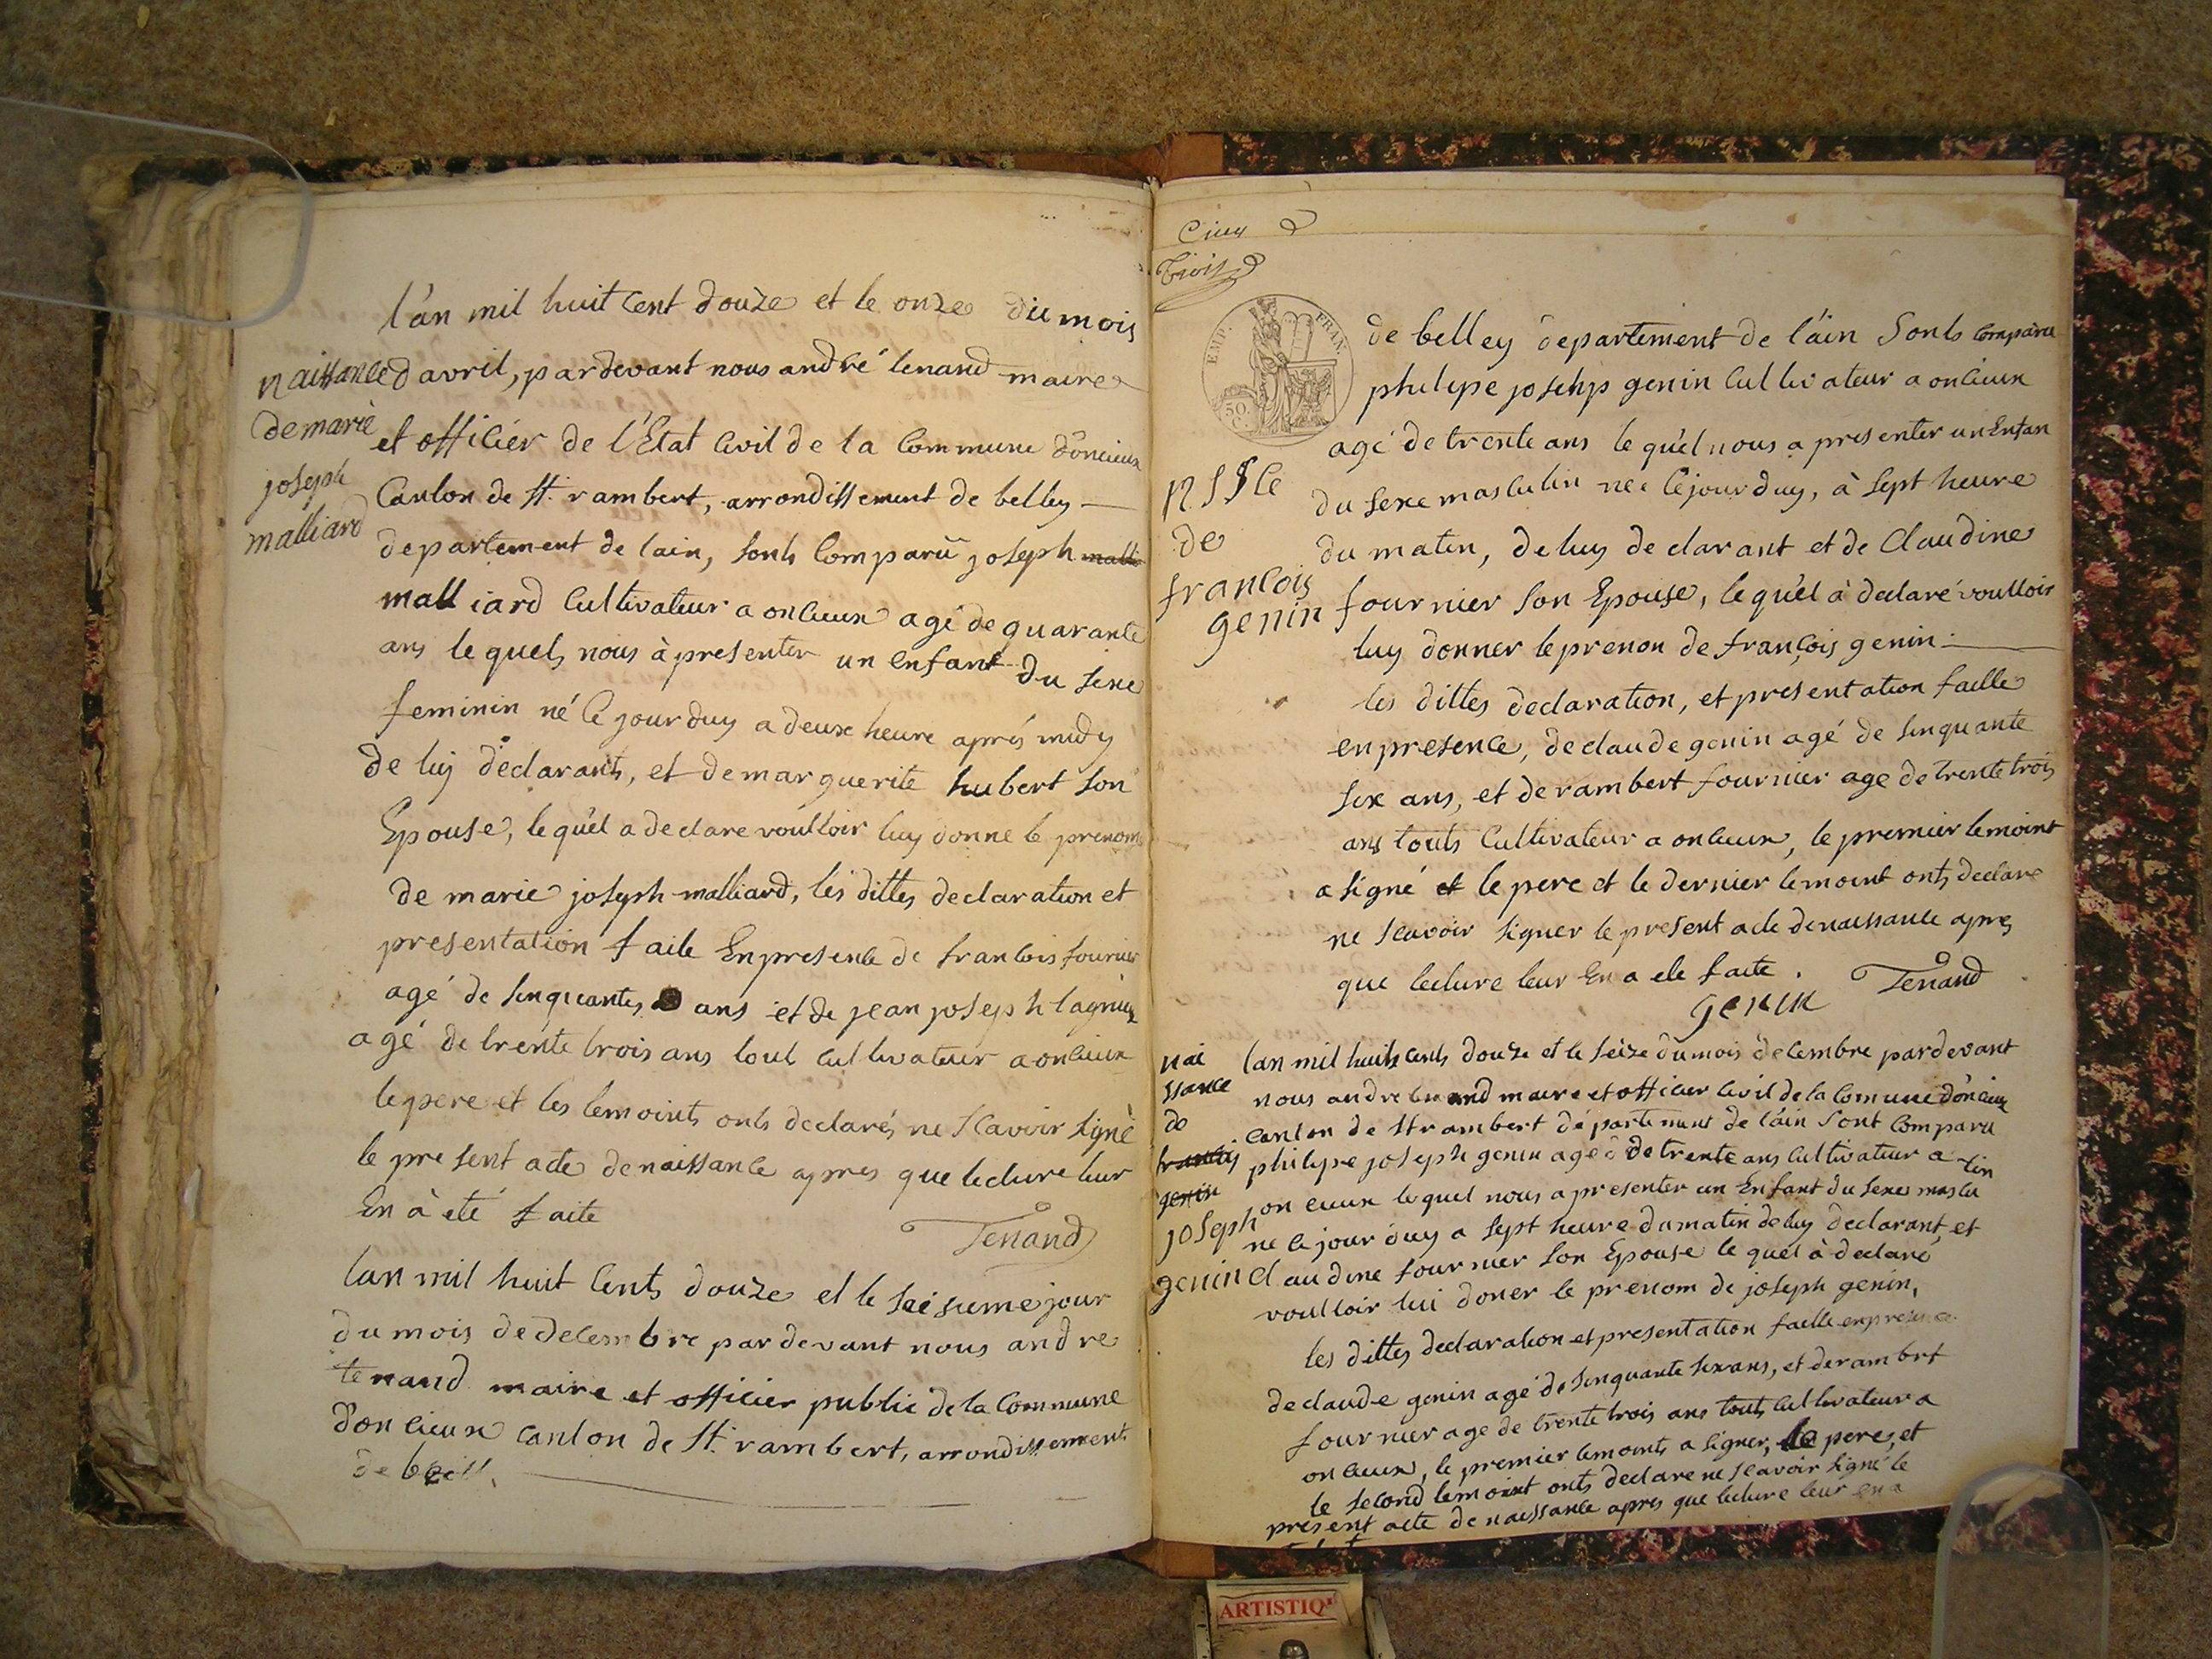 l'an mil huit cent douze et le onze du mois
naissance d'avril, pardevant nous andré tenand maire
de marie
et officiér de l'Etat civil de la commune d'oncieux
joseph
Canton de St. rambert, arrondissement de belley
malliard
departement de lain, sonts Comparû joseph malli
malliard Cultivateur a oncieux agé de quarante
ans le quels nous à presenter un enfant du sexe
feminin né ce jour duy a deux heure aprés midy
de luy déclarants, et de marguerite hubert son
Epouse, le qu'el a declare voulloir luy donne le prenom
de marie joseph malliard, les dittes declaration et
presentation faite En presence de francois fournier
agé de sinquantes ans et de jean joseph lagnieux
agé de trente trois ans tout cultivateur a oncieux
le pere et les temoints onts declarés ne scavoir signé
le present acte de naissance apres que lecture leur
En à eté faite
Tenand
lan mil huit cents douze et le seisieme jour
du mois de decembre par devant nous andre
tenand maire et officier public de la Commune
d'oncieux canton de St. rambert, arrondissement
de bell.
Cinq
Trois
EMP. FRAN.
50. C.
de belley departement de l'ain Sonts comparu
philipe josehp genin cultivateur a oncieux
agé de trente ans le qu'el nous a presenter un Enfan
nssce
du sexe masculin nee ce jour duy, à sept heure
de
du matin, de luy declarant et de Claudine
francois
genin
fournier son Epouse, le qu'el à declaré voulloir
luy donner le prenon de françois genin.
les dittes declaration, et presentation faitte
en presence, de claude genin agé de sinquante
six ans, et de rambert fournier age de trente trois
ans touts Cultivateur a oncieux, le premier temoint
a signé et le pere et le dernier temoint onts declare
ne scavoir signer le present acte de naissance apres
que lecture leur En a ete faite.
Tenand
genin
nai
lan mil huits cents douze et le seize du mois decembre pardevant
ssance
nous andre tenand maire et officier civil de la Comune d'oncieux
de
canton de St rambert departement de l'ain Sont Comparu
francois
philipe joseph genin agé de trente ans Cultivateur a
genin
oncieux lequel nous a presenter un Enfant du sexe mascu
lin
joseph
ne ce jour duy a sept heure du matin de luy declarant, et
genin
claudine fournier son Epouse le quel à declaré
voulloir lui doner le prenom de joseph genin,
les dittes declaration et presentation faitte en presence
de claude genin agé de sinquante six ans, et de rambert
fournier age de trente trois ans touts cultivateur a
oncieux, le premier temoints a signer, le pere, et
le second temoint onts declare ne scavoir signé le
présent acte de naissance apres que lecture leur en a
ARTISTIQ